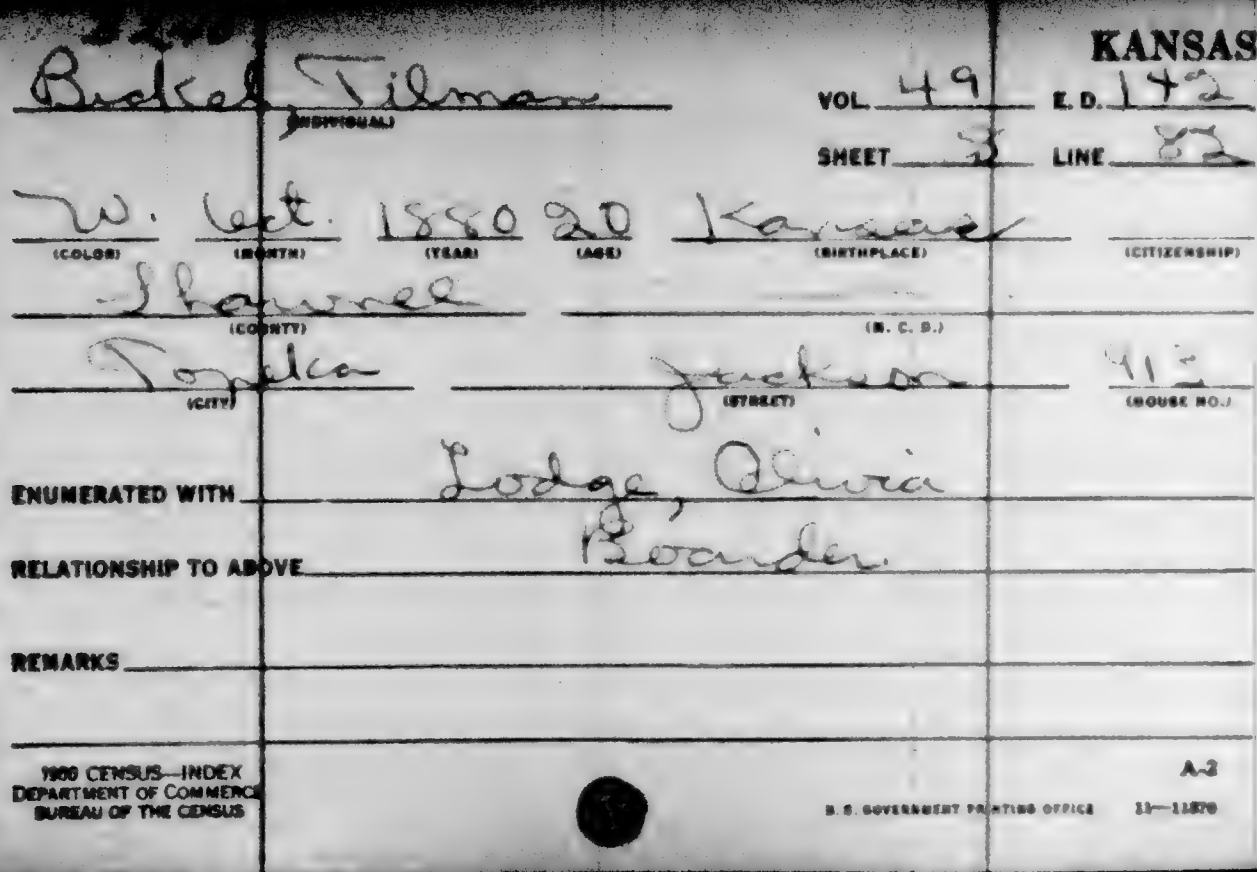 KANSAS
Bickel, Tilman VOL. 49 E. D. 142
(INDIVIDUAL)
SHEET 8 LINE 82
W. Oct. 1880 20 Kansas
(COLOR) (MONTH) (YEAR) (AGE) (BIRTHPLACE) (CITIZENSHIP)
Shawnee
(COUNTY) (M. C. D.)
Topeka Jackson 912
(CITY) (STREET) (HOUSE NO.)
ENUMERATED WITH Lodge, Olivia
RELATIONSHIP TO ABOVE Boarder.
REMARKS
1900 CENSUS—INDEX
DEPARTMENT OF COMMERCE
BUREAU OF THE CENSUS
A-2
U. S. GOVERNMENT PRINTING OFFICE 11—11870